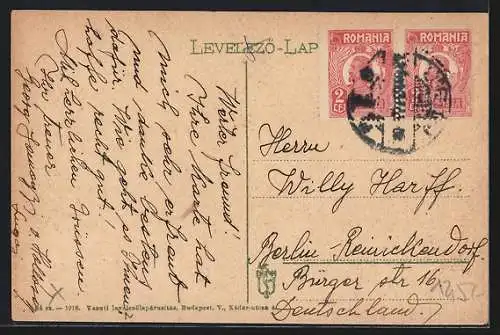 LEVELEZŐ-LAP
ROMANIA
ROMANIA
2 LEI
2 LEI
Werter Freund!
Ihre Karte hat
mich sehr erfreut
und danke bestens
dafür. Wie geht es Ihnen?
hoffe recht gut!
Mit herzlichen Grüssen
Ihr treuer
Georg
Lugoj
Herrn
Willy Harff.
Berlin-Reinickendorf
Bürger str 16.
Deutschland.
1918. Vasuti levelezőlapárusitás, Budapest, V.,